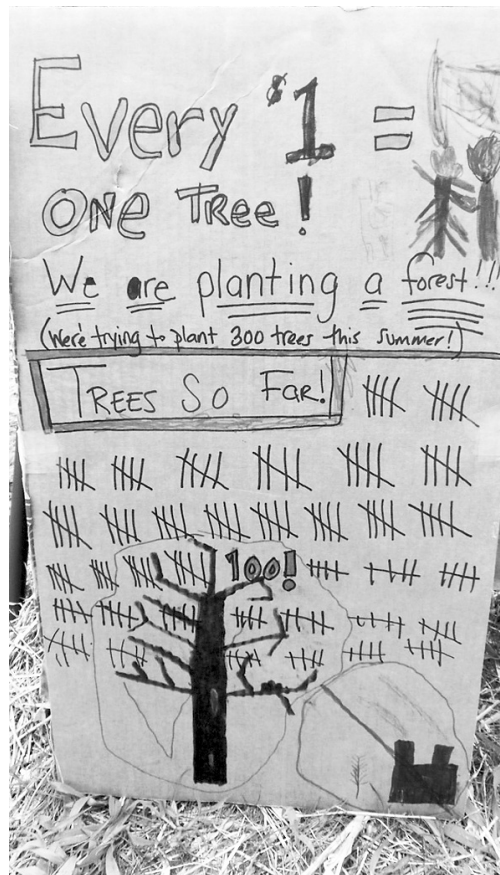 Every $1 =
ONE TREE!
We are planting a forest!!!
(We're trying to plant 300 trees this summer!)
TREES SO FAR!
100!